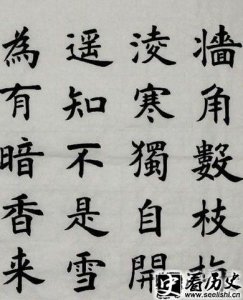 牆角數枝
淩寒獨自開
遥知不是雪
為有暗香来
看历史
www.seelishi.cn